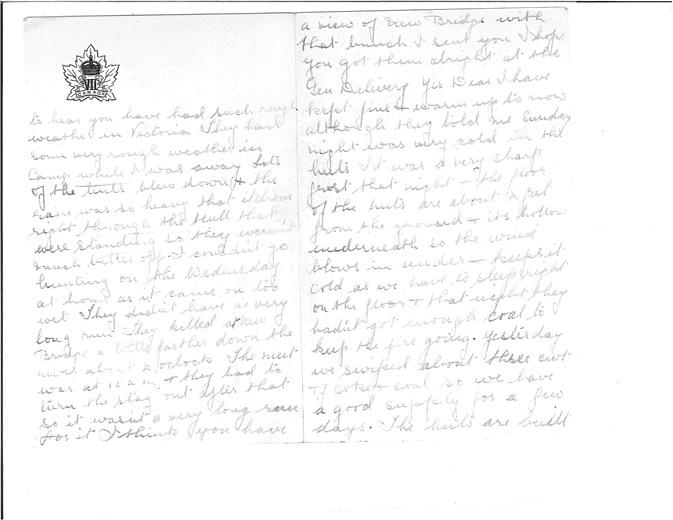 VII
CANADA
to hear you have had such rough
weather in Victoria They had
some very rough weather in
Camp while I was away Lots
of the tents blew down & the
rain was so heavy that it drove
right through the tents that
were standing so they weren't
much better off. I couldn't go
hunting on the Wednesday
at home as it came on too
wet They didn't have a very
long run They killed at New
Bridge a little farther down the
river about 2 oclock The meet
was at 10 a.m. & they had to
turn the stag out after that
so it wasn't a very long run
for it I think you have
a view of New Bridge with
that bunch I sent you I hope
you got them alright at the
Gen Delivery Yes Dear I have
kept fine & warm up to now
although they told me Sunday
night was very cold in the
huts It was a very sharp
frost that night & the floors
of the huts are about a foot
from the ground & its hollow
underneath so the wind
blows in under & keeps it
cold as we have to sleep right
on the floor & that night they
hadn't got enough coal to
keep the fire going. Yesterday
we swiped about three cwt
of coke & coal so we have
a good supply for a few
days. The huts are built